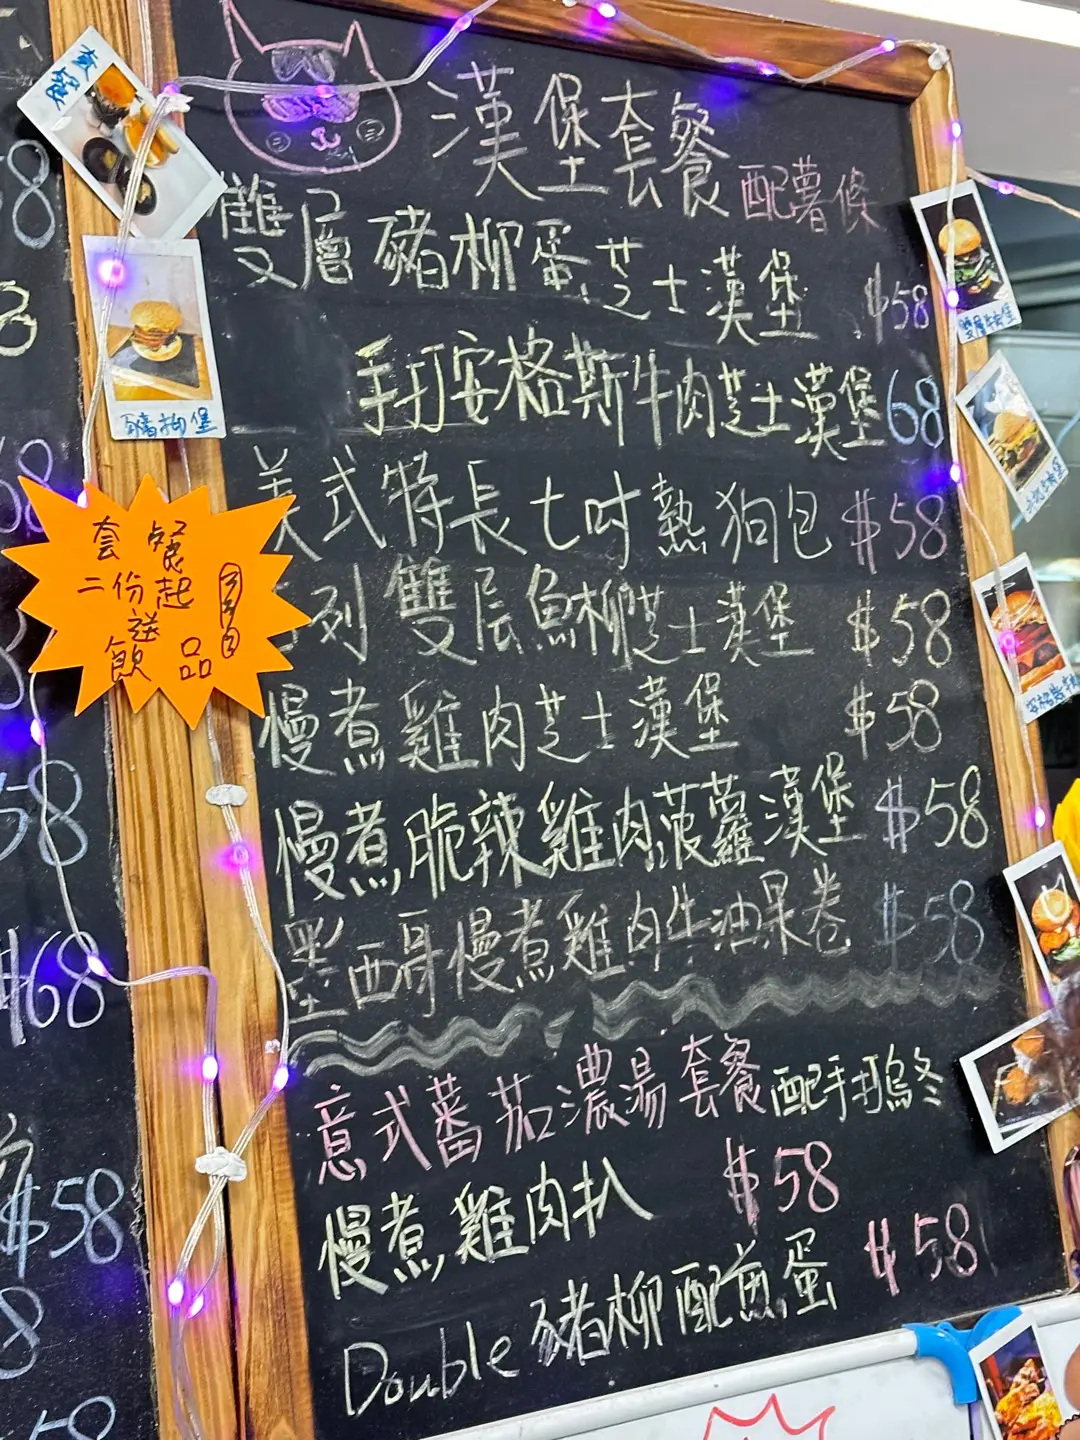 漢堡套餐 配薯條
雙層豬柳蛋芝士漢堡 $58
手打安格斯牛肉芝士漢堡 68
美式特長七吋熱狗包 $58
列雙层魚柳芝士漢堡 $58
慢煮雞肉芝士漢堡 $58
慢煮脆辣雞肉菠蘿漢堡 $58
墨西哥慢煮雞肉牛油果卷 $58
意式蕃茄濃湯套餐配手打烏冬
慢煮雞肉扒 $58
Double 豬柳配煎蛋 $58
套餐
二份起
送
飲品
套餐
豬柳堡
雙層牛堡
$68
$58
58